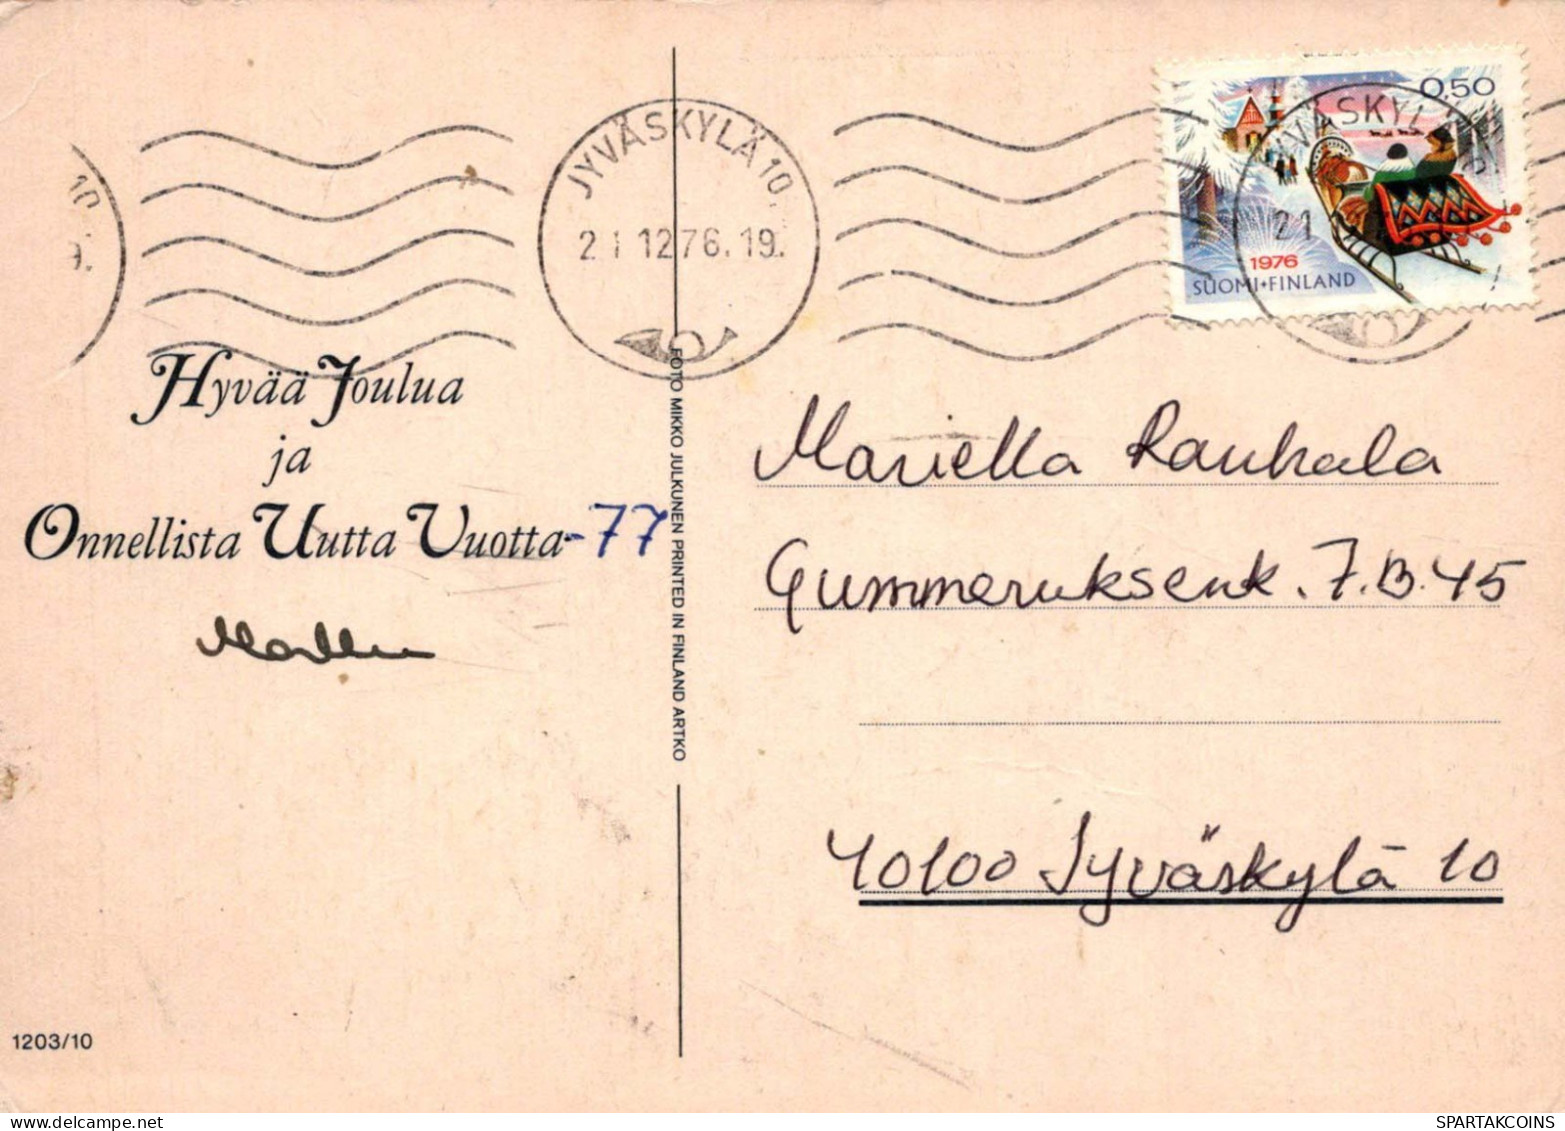 10.
9.
JYVÄSKYLÄ 10.
21.12.76.19.
0,50
JYVÄSKYLÄ
21
1976
SUOMI•FINLAND
Hyvää Joulua
ja
Onnellista Uutta Vuotta -77
Markku
FOTO MIKKO JULKUNEN PRINTED IN FINLAND ARTKO
Mariella Rauhala
Gummeruksenk. 7.B.45
40100 Jyväskylä 10
1203/10
SPARTAKCOINS